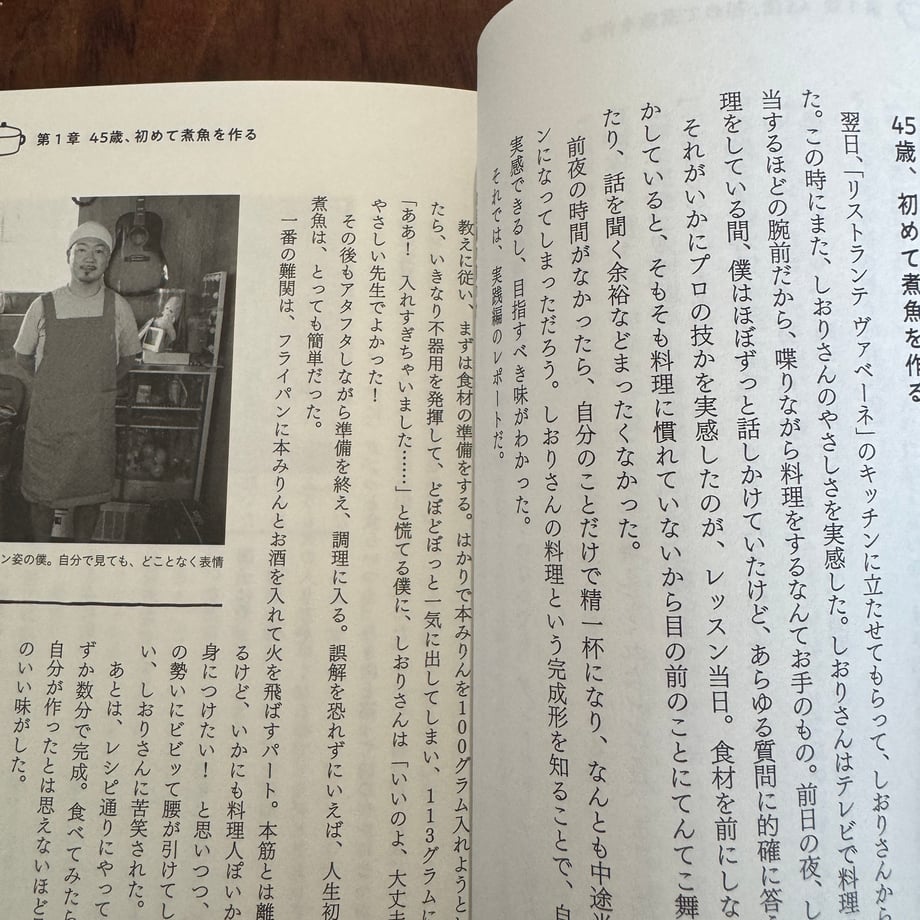 45歳、初めて煮魚を作
翌日、「リストランテ ヴァベーネ」のキッチンに立たせてもらって、しおりさんから
た。この時にまた、しおりさんのやさしさを実感した。しおりさんはテレビで料理
当するほどの腕前だから、喋りながら料理をするなんてお手のもの。前日の夜、し
理をしている間、僕はほぼずっと話しかけていたけど、あらゆる質問に的確に答
それがいかにプロの技かを実感したのが、レッスン当日。食材を前にしな
かしていると、そもそも料理に慣れていないから目の前のことにてんてこ舞
たり、話を聞く余裕などまったくなかった。
前夜の時間がなかったら、自分のことだけで精一杯になり、なんとも中途半
ンになってしまっただろう。しおりさんの料理という完成形を知ることで、自
実感できるし、目指すべき味がわかった。
それでは、実践編のレポートだ。
第1章 45歳、初めて煮魚を作る
教えに従い、まずは食材の準備をする。はかりで本みりんを100グラム入れようと
たら、いきなり不器用を発揮して、どぼどぼっと一気に出してしまい、113グラムに
「ああ! 入れすぎちゃいました……」と慌てる僕に、しおりさんは「いいのよ、大丈夫
やさしい先生でよかった!
その後もアタフタしながら準備を終え、調理に入る。誤解を恐れずにいえば、人生初
煮魚は、とっても簡単だった。
一番の難関は、フライパンに本みりんとお酒を入れて火を飛ばすパート。本筋とは離
るけど、いかにも料理人ぽいか
身につけたい! と思いつつ、
の勢いにビビッて腰が引けてし
い、しおりさんに苦笑された。
あとは、レシピ通りにやって
ずか数分で完成。食べてみたら
自分が作ったとは思えないほど
のいい味がした。
ン姿の僕。自分で見ても、どことなく表情